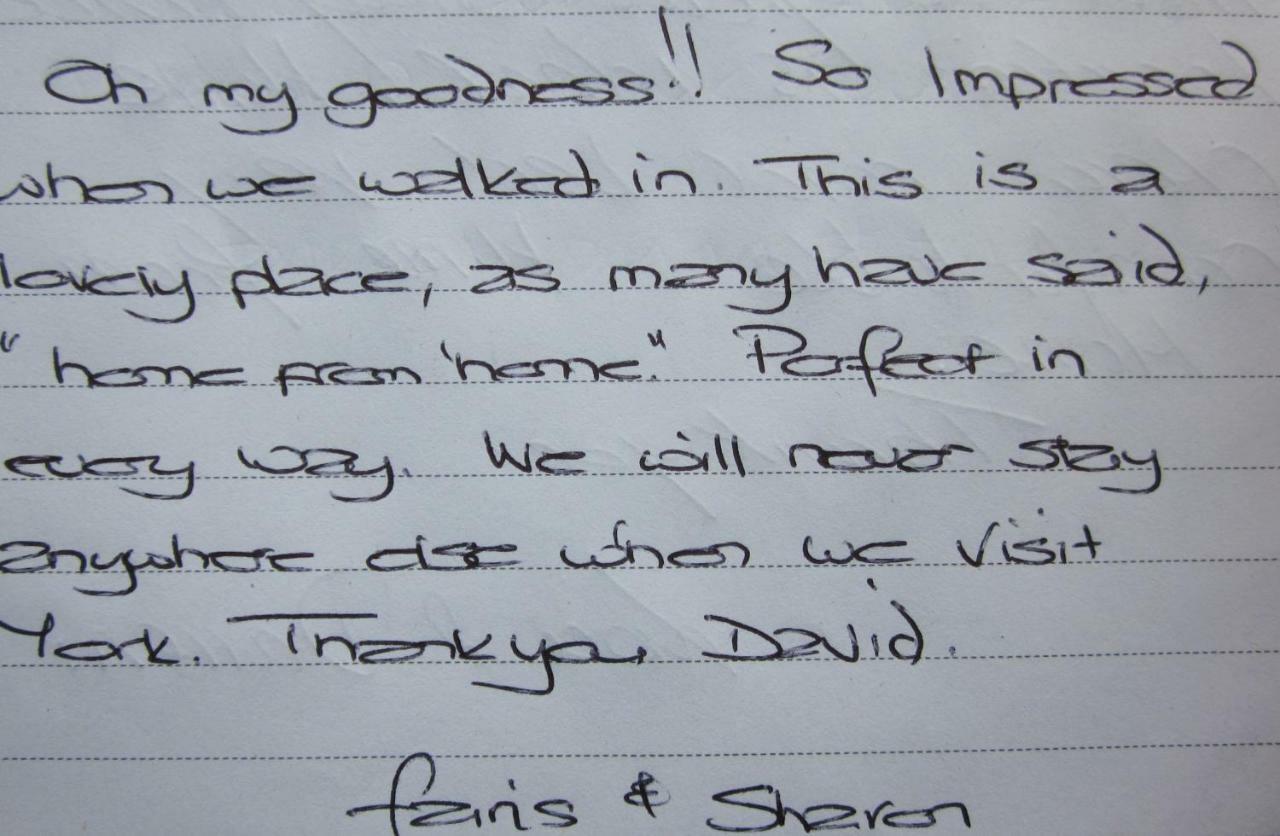 Oh my goodness!! So Impressed
when we walked in. This is a
lovely place, as many have said,
"home from 'home." Perfect in
every way. We will never stay
anywhere else when we visit
York. Thankyou David.
& Sharon